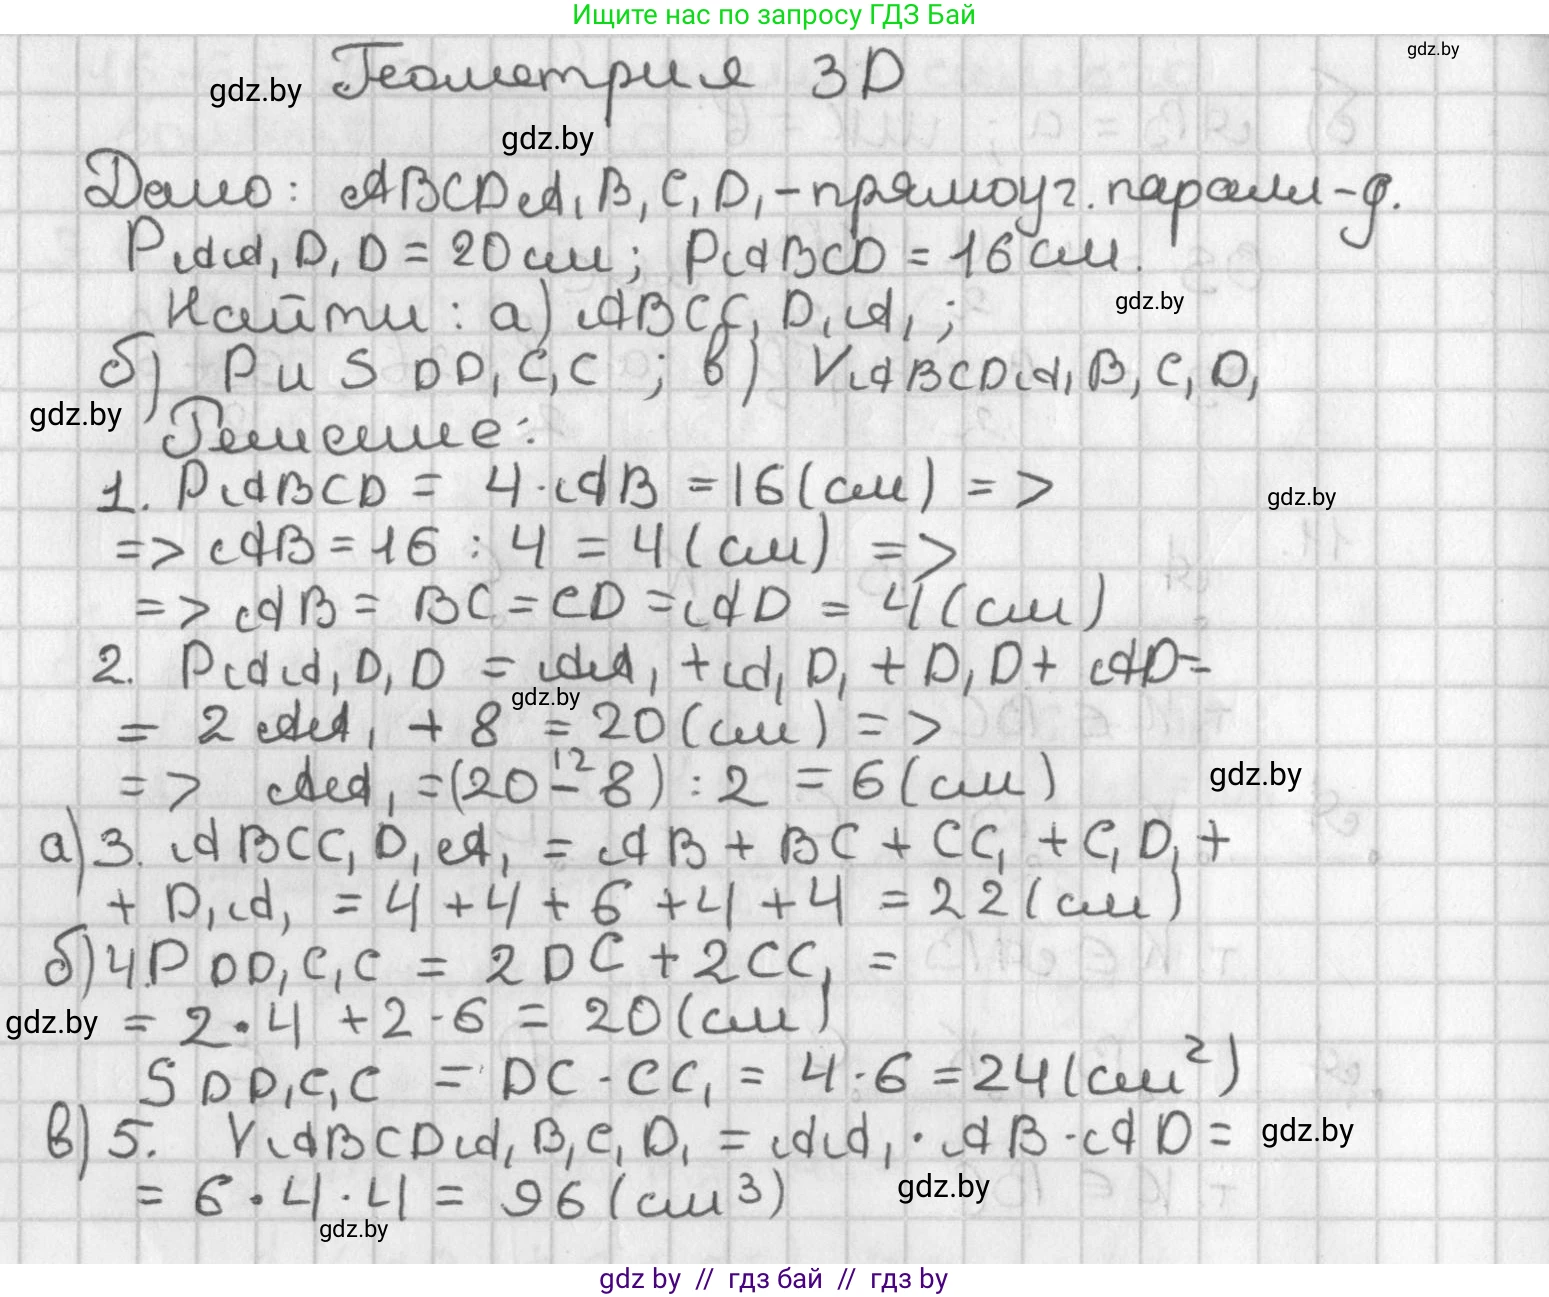 Ищите нас по запросу ГДЗ Бай
gdz.by
Геометрия 3D
gdz.by
gdz.by
Дано: ABCDA₁B₁C₁D₁ - прямоуг. паралл-д.
PAA₁D₁D = 20 см; PABCD = 16 см.
Найти: а) ABCC₁D₁A₁;
gdz.by
б) P и S DD₁C₁C; в) VABCDA₁B₁C₁D₁
gdz.by
Решение:
1. PABCD = 4·AB = 16 (см) =>
gdz.by
=> AB = 16 : 4 = 4 (см) =>
=> AB = BC = CD = AD = 4 (см)
2. PAA₁D₁D = AA₁ + A₁D₁ + D₁D + AD =
gdz.by
= 2AA₁ + 8 = 20 (см) =>
12
=> AA₁ = (20 - 8) : 2 = 6 (см)
gdz.by
а) 3. ABCC₁D₁A₁ = AB + BC + CC₁ + C₁D₁ +
+ D₁A₁ = 4 + 4 + 6 + 4 + 4 = 22 (см)
б) 4. P DD₁C₁C = 2DC + 2CC₁ =
gdz.by
= 2·4 + 2·6 = 20 (см)
S DD₁C₁C = DC·CC₁ = 4·6 = 24 (см²)
в) 5. VABCDA₁B₁C₁D₁ = AA₁·AB·AD =
gdz.by
= 6·4·4 = 96 (см³)
gdz.by
gdz.by
gdz by // гдз бай // гдз by